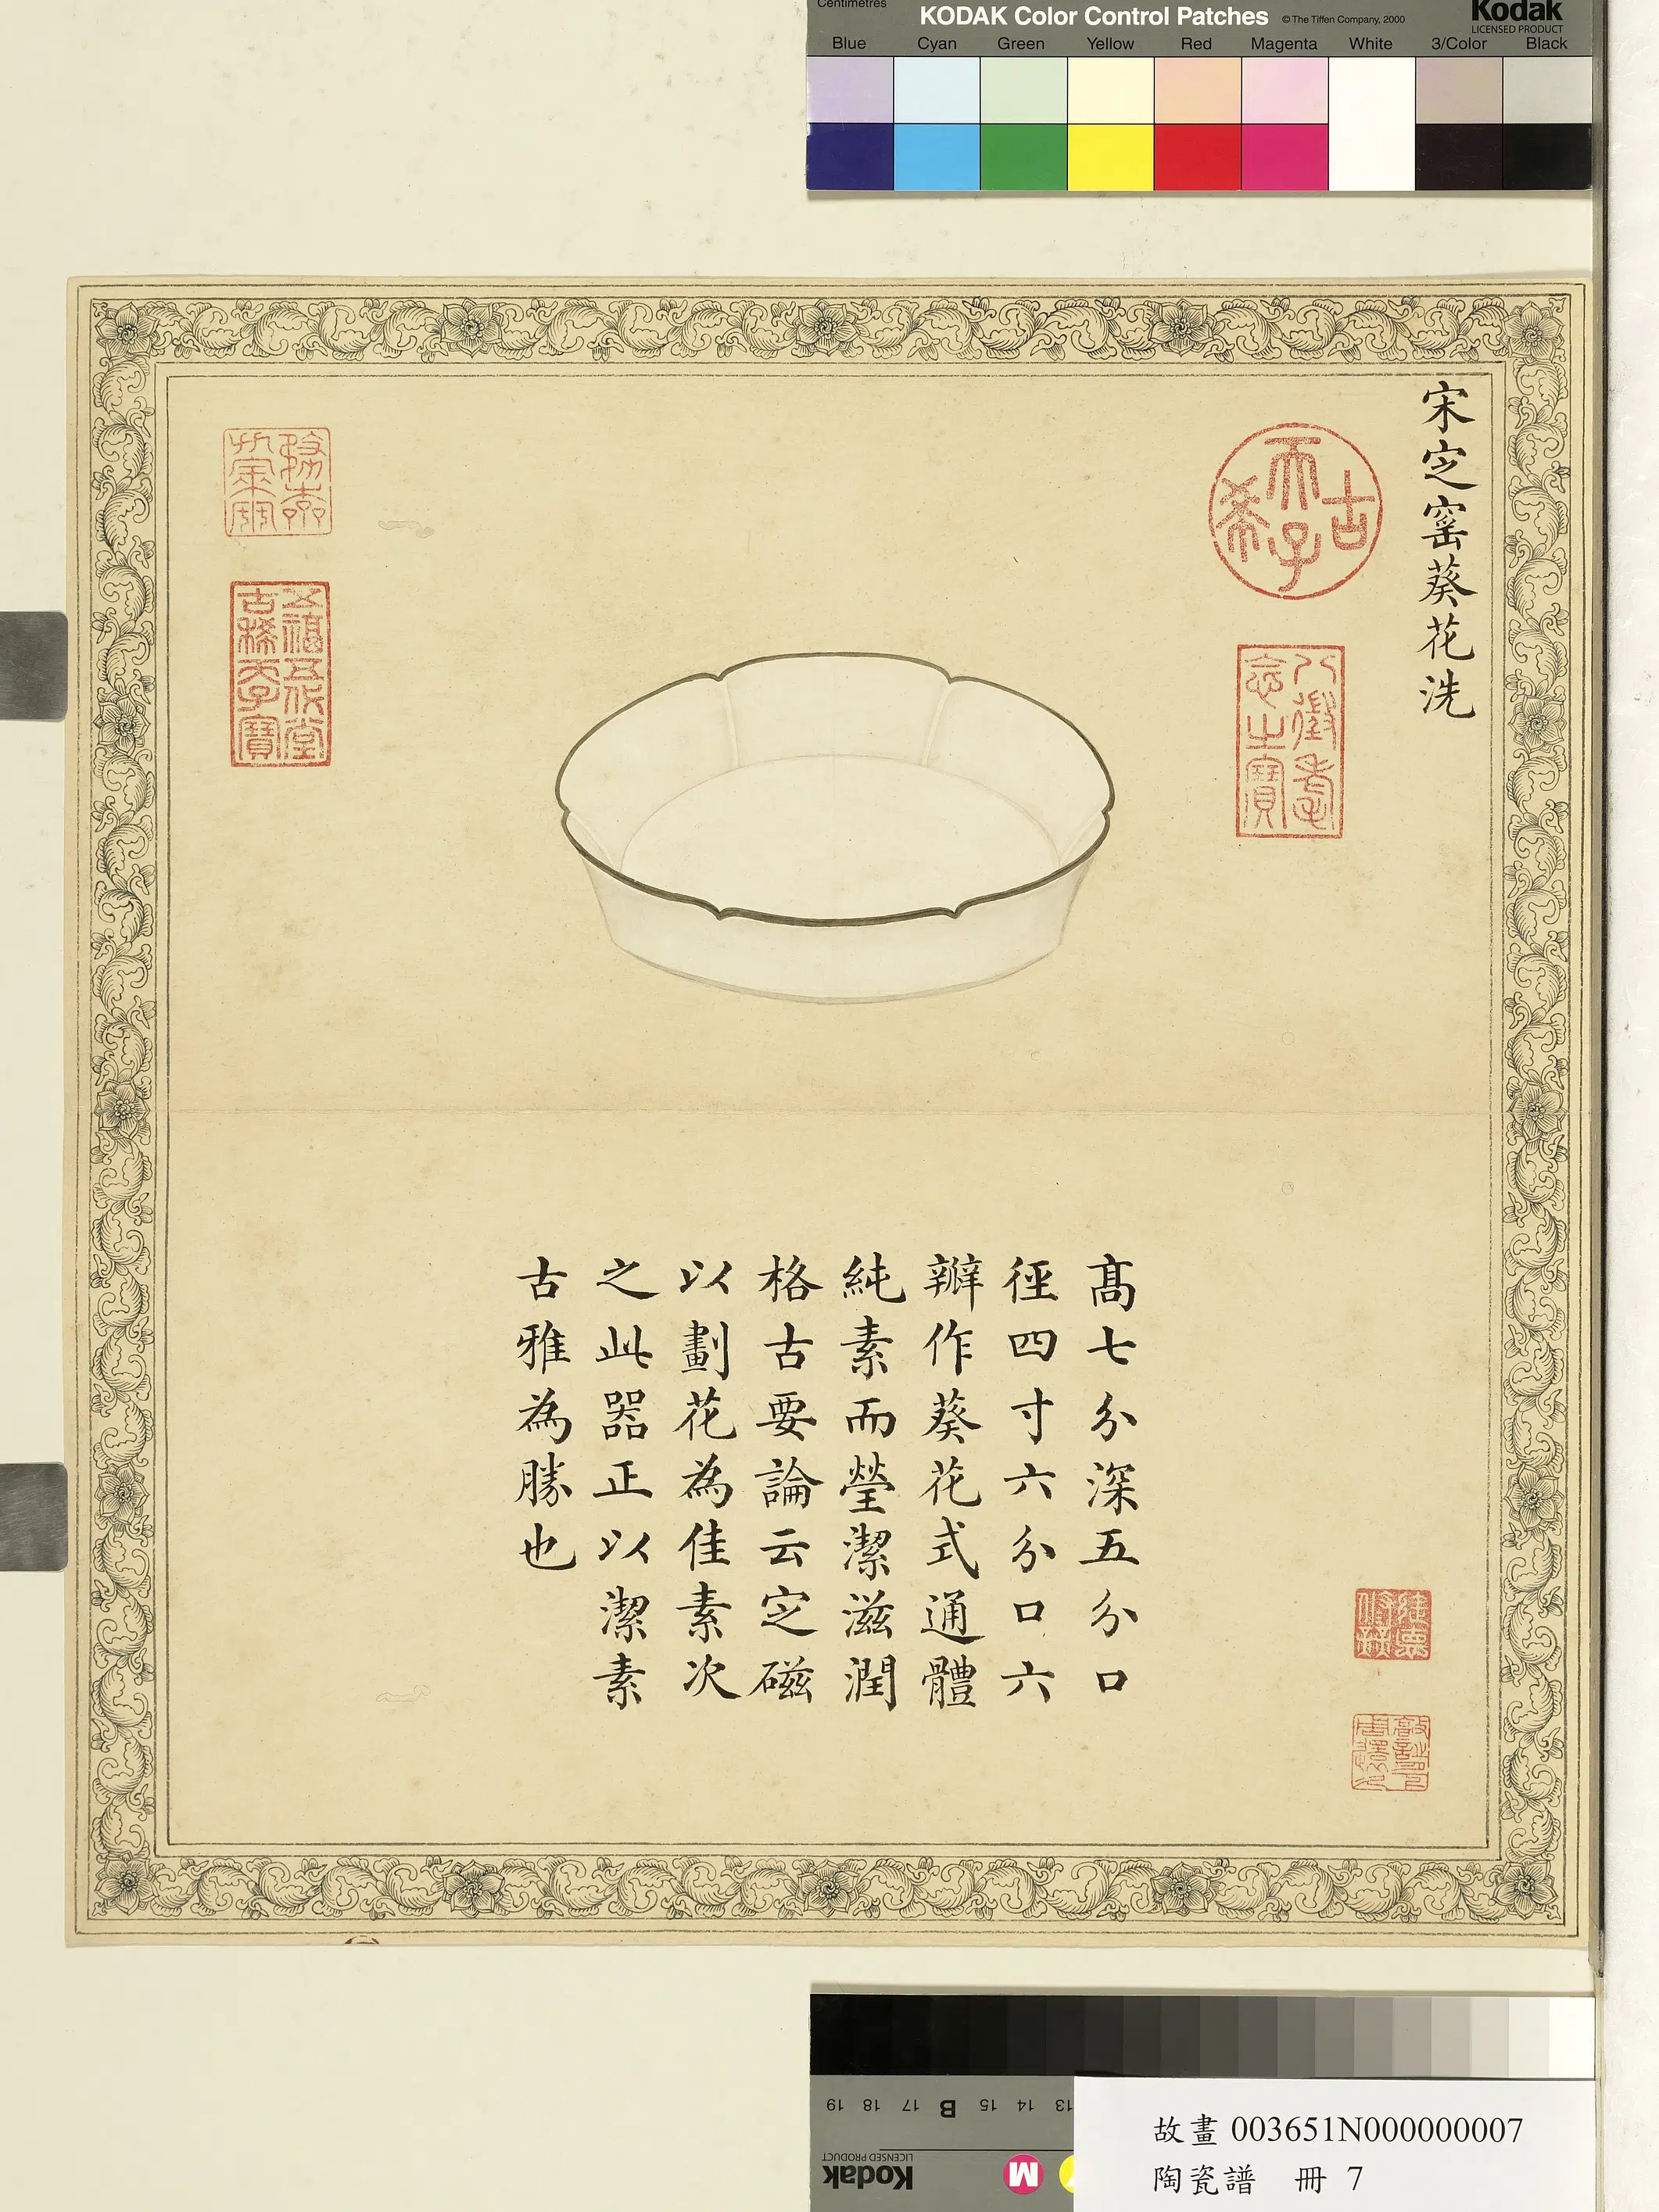 Centimetres
KODAK Color Control Patches © The Tiffen Company, 2000
Kodak
LICENSED PRODUCT
Blue Cyan Green Yellow Red Magenta White 3/Color Black
宋定窰葵花洗
古希天子
八徵耄念之寶
五福五代堂古稀天子寶
高七分深五分口
徑四寸六分口六
瓣作葵花式通體
純素而瑩潔滋潤
格古要論云定磁
以劃花為佳素次
之此器正以潔素
古雅為勝也
19 18 17 B 15 14 13
LICENSED PRODUCT
Kodak
M
故畫 003651N000000007
陶瓷譜 冊 7